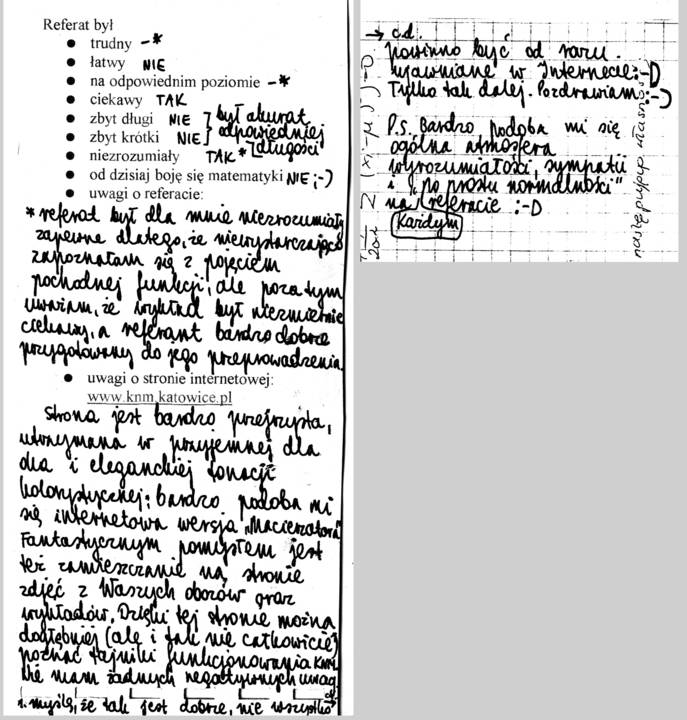 Referat był
● trudny – *
● łatwy NIE
● na odpowiednim poziomie – *
● ciekawy TAK
● zbyt długi NIE ] był akurat
● zbyt krótki NIE ] odpowiedniej
długości
● niezrozumiały TAK *
● od dzisiaj boję się matematyki NIE ;-)
● uwagi o referacie:
* referat był dla mnie niezrozumiały
zapewne dlatego, że niewystarczająco
zapoznałam się z pojęciem
pochodnej funkcji, ale poza tym
uważam, że wykład był niezmiernie
ciekawy, a referant bardzo dobrze
przygotowany do jego przeprowadzenia.
● uwagi o stronie internetowej:
www.knm.katowice.pl
Strona jest bardzo przejrzysta,
utrzymana w przyjemnej dla
oka i eleganckiej tonacji
kolorystycznej; bardzo podoba mi
się internetowa wersja „Macierzatora”
Fantastycznym pomysłem jest
też zamieszczanie na stronie
zdjęć z Waszych obozów oraz
wykładów. Dzięki tej stronie można
dogłębniej (ale i tak nie całkowicie)
poznać tajniki funkcjonowania KNM.
Nie mam żadnych negatywnych uwag
i myślę, że tak jest dobrze, nie wszystko
→ c.d.
powinno być od razu
ujawniane w Internecie :-D
Tylko tak dalej. Pozdrawiam :-)
P.S. Bardzo podoba mi się
ogólna atmosfera
wyrozumiałości, sympatii
i „po prostu normalności”
na referacie :-D
Kardym